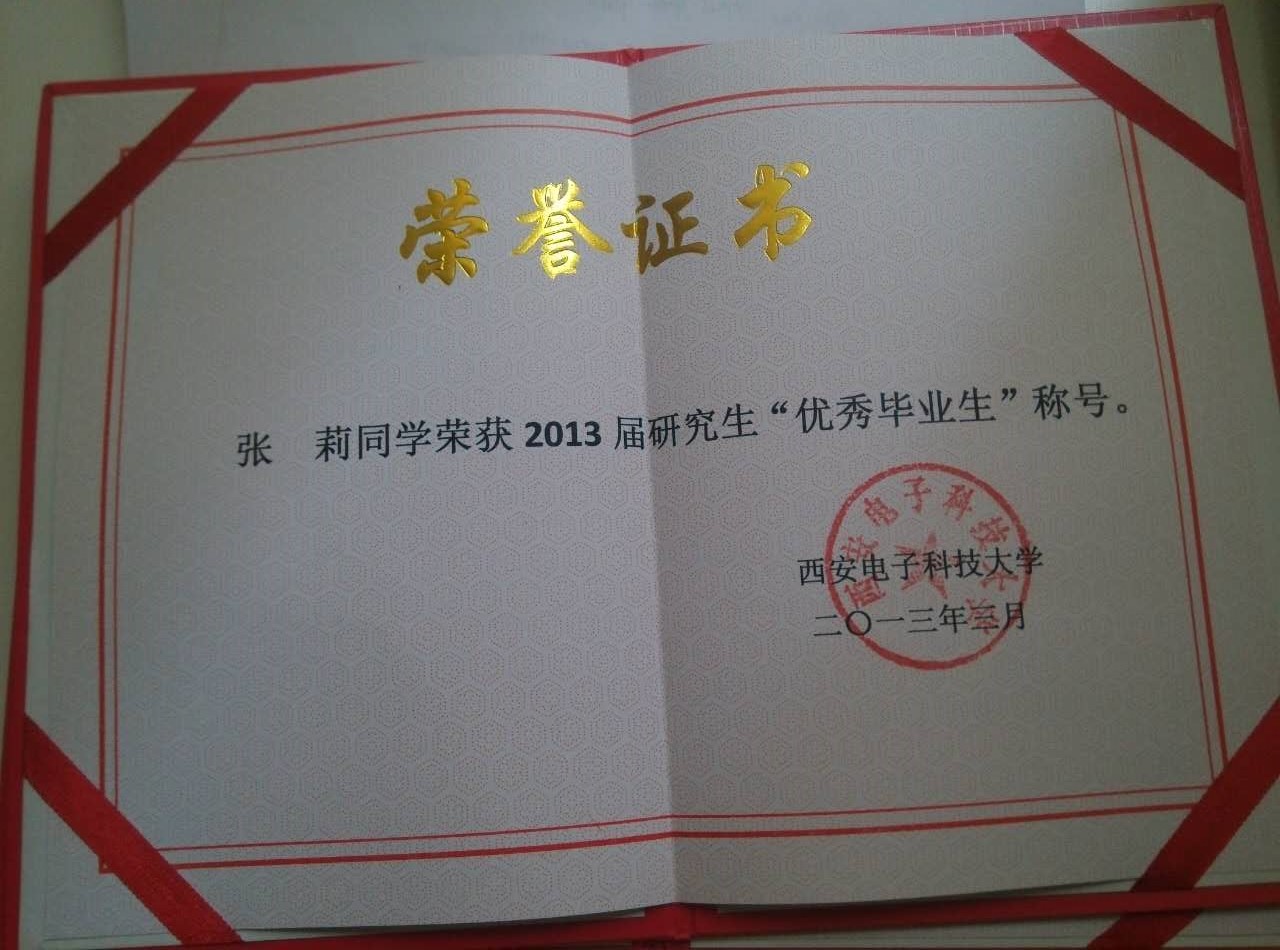 荣誉证书
张 莉同学荣获 2013 届研究生“优秀毕业生”称号。
西安电子科技大学
西安电子科技大学
二〇一三年三月